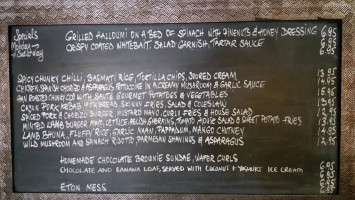 Specials
Monday →
Saturday
GRILLED HALLOUMI ON A BED OF SPINACH WITH PINENUTS & HONEY DRESSING 6.95
CRISPY COATED WHITEBAIT, SALAD GARNISH, TARTAR SAUCE
SPICY CHUNKY CHILLI, BASMATI RICE, TORTILLA CHIPS, SOURED CREAM
CHICKEN, SPANISH CHORIZO & ASPARAGUS FETTUCINE IN A CREAMY MUSHROOM & GARLIC SAUCE
PAN ROASTED COD WITH SAUTE GOURMET POTATOES & VEGETABLES
CAJUN PORK KEBAB WITH BREADS, SKINNY FRIES, SALAD & COLESLAW
SPICED PORK & CHORIZO BURGER, MUSTARD MAYO, CURLY FRIES & HOUSE SALAD
MINTED LAMB BURGER, LETTUCE, TOMATO SALAD & SWEET POTATO FRIES
LAMB BHUNA, FLUFFY RICE, GARLIC NAAN, PAPPADUM, MANGO CHUTNEY
WILD MUSHROOM AND SPINACH RISOTTO, PARMESAN SHAVINGS & ASPARAGUS
HOMEMADE CHOCOLATE BROWNIE SUNDAE, WAFER CURLS
CHOCOLATE AND BANANA LOAF, SERVED WITH COCONUT & ICE CREAM
ETON MESS